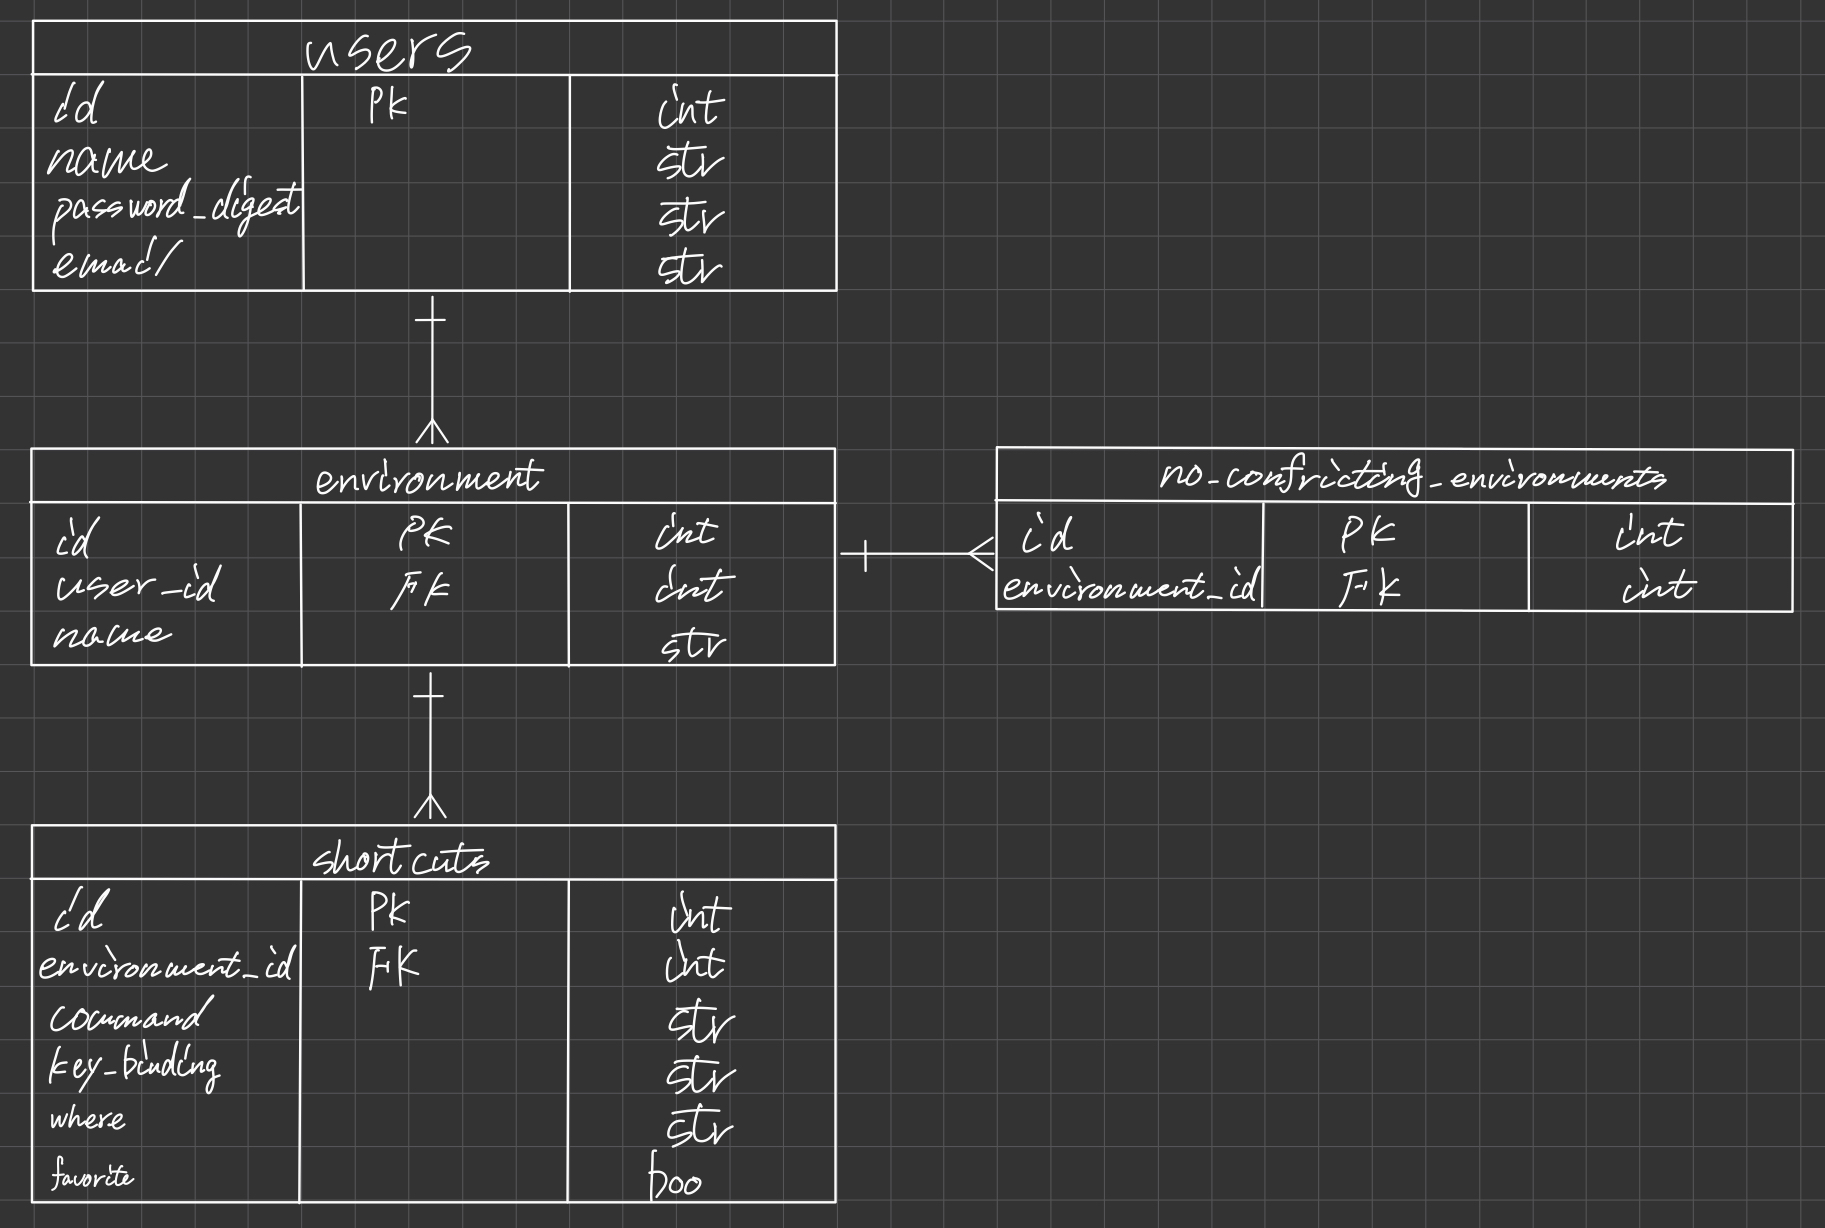 users
id PK int
name str
password_digest str
email str
environment
id PK int
user_id FK int
name str
no_confricting_environments
id PK int
environment_id FK int
shortcuts
id PK int
environment_id FK int
command str
key_binding str
where str
favorite boo